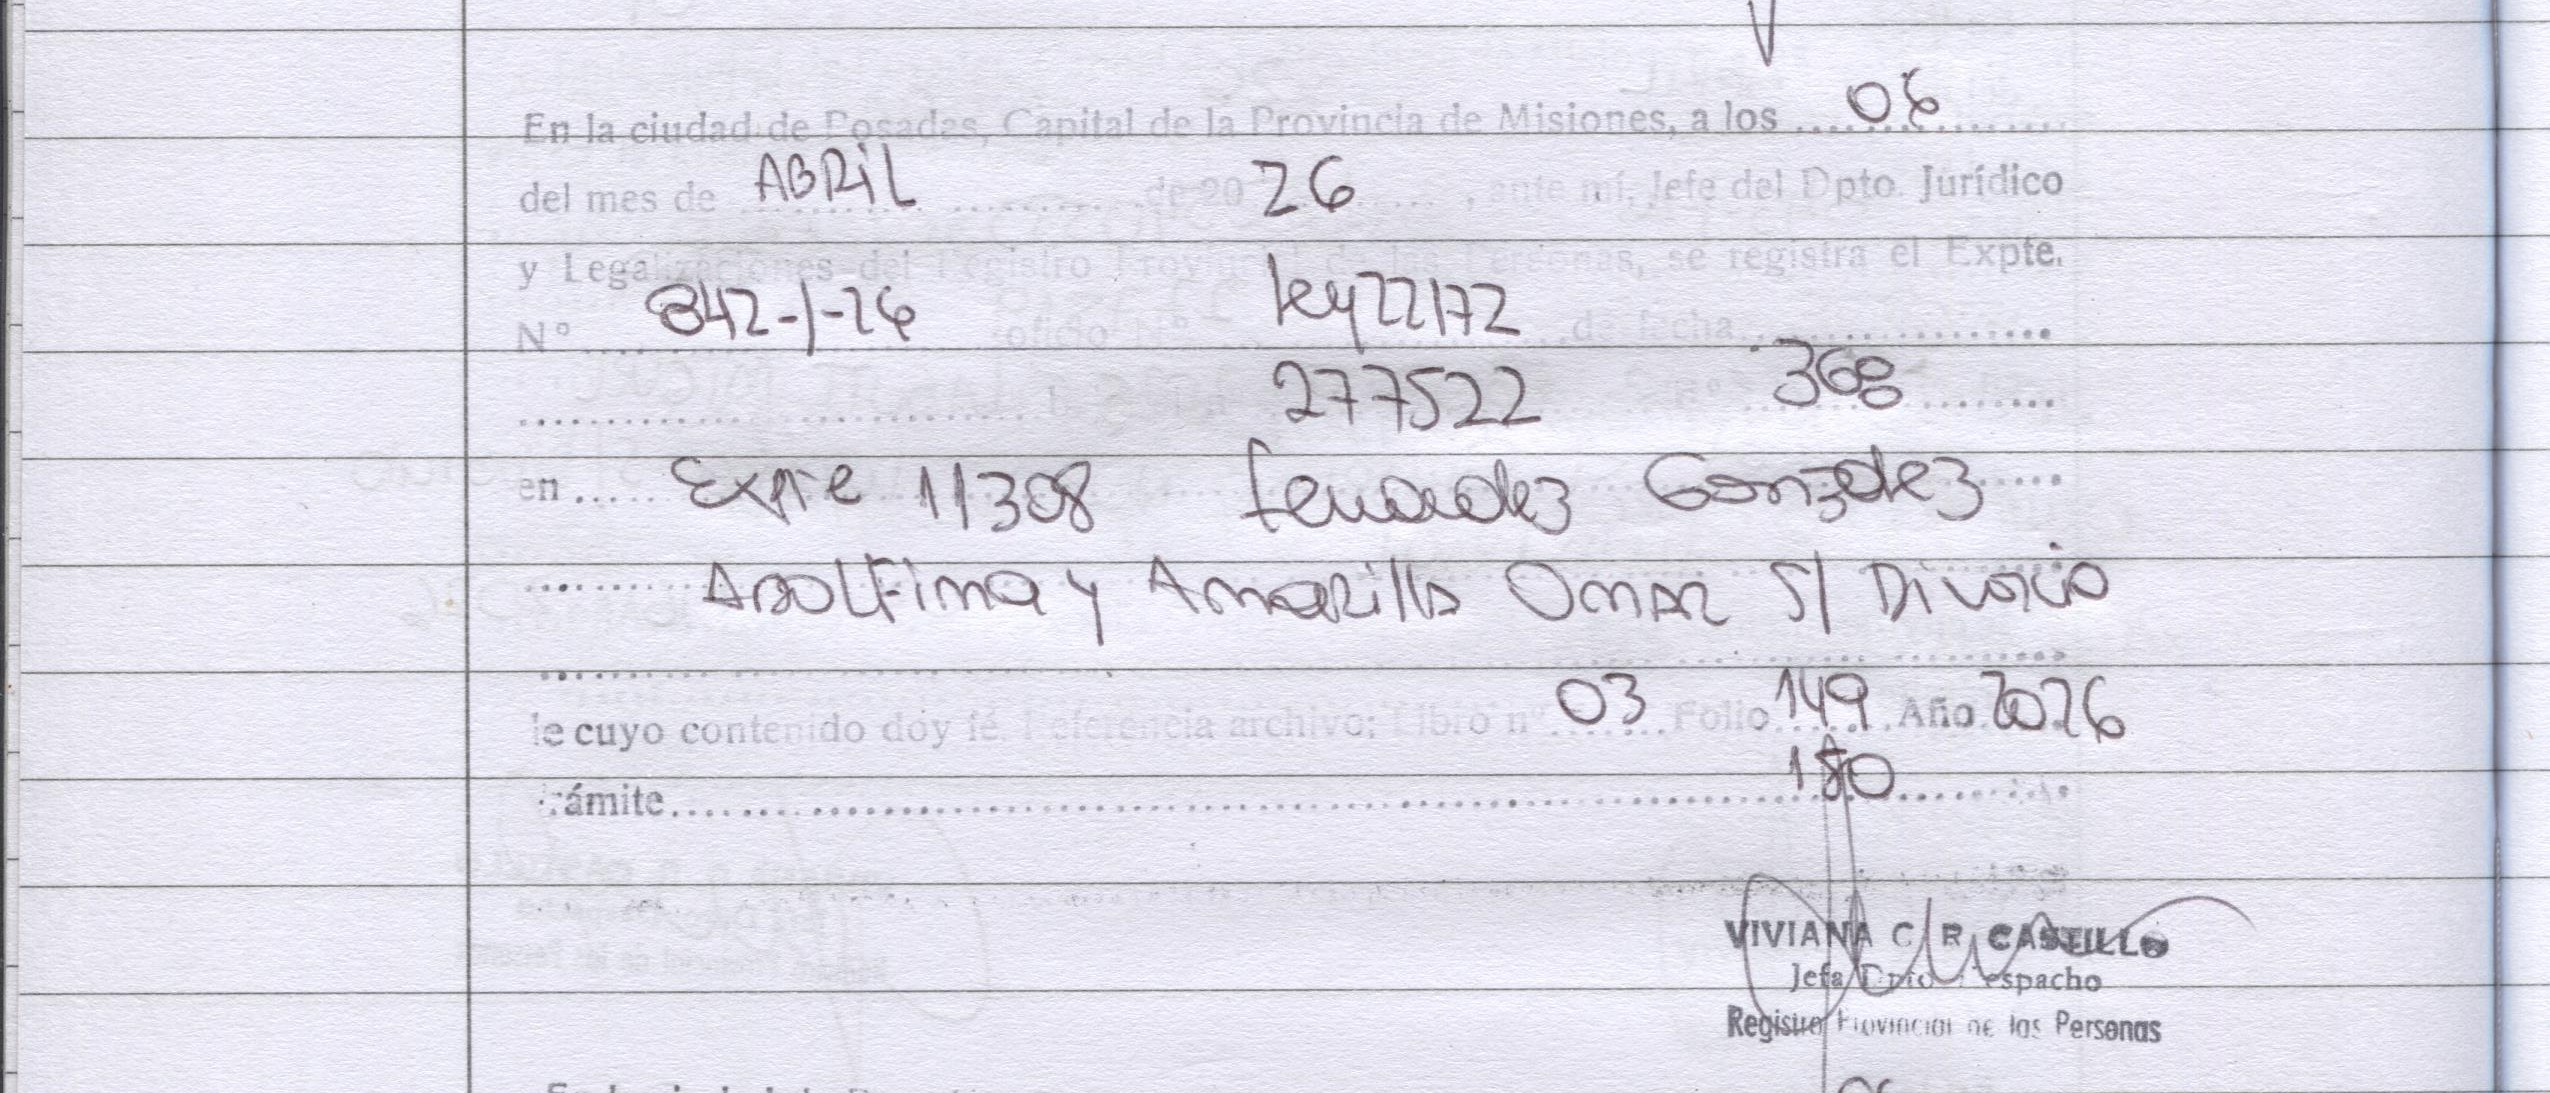 En la ciudad de Posadas, Capital de la Provincia de Misiones, a los .... 06
del mes de ABRIL de 20 26, ante mí, Jefe del Dpto. Jurídico
y Legalizaciones del Registro Provincial de las Personas, se registra el Expte.
Nº 842-1-26 oficio Nº ley 22172 de fecha
277522 368
en Expte 11308 Fernandez Gonzalez
Adolfina y Amarilla Omar S/ Divorcio
de cuyo contenido doy fé. Referencia archivo; Libro nº 03 Folio 149 Año 2026
trámite 150
VIVIANA C. R. CASTILLO
Jefa Dpto. Despacho
Registro Provincial de las Personas